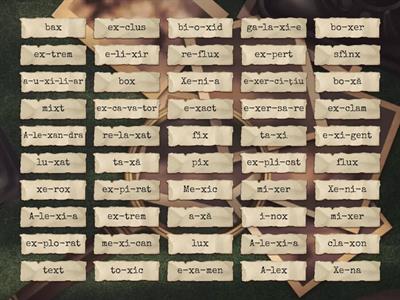 bax ex-clus bi-o-xid ga-la-xi-e bo-xer
ex-trem e-li-xir re-flux ex-pert sfinx
a-u-xi-li-ar box Xe-ni-a e-xer-ci-țiu bo-xă
mixt ex-ca-va-tor e-xact e-xer-sa-re ex-clam
A-le-xan-dra re-la-xat fix ta-xi e-xi-gent
lu-xat ta-xă pix ex-pli-cat flux
xe-rox ex-pi-rat Me-xic mi-xer Xe-ni-a
A-le-xi-a ex-trem a-xă i-nox mi-xer
ex-plo-rat me-xi-can lux A-le-xi-a cla-xon
text to-xic e-xa-men A-lex Xe-na